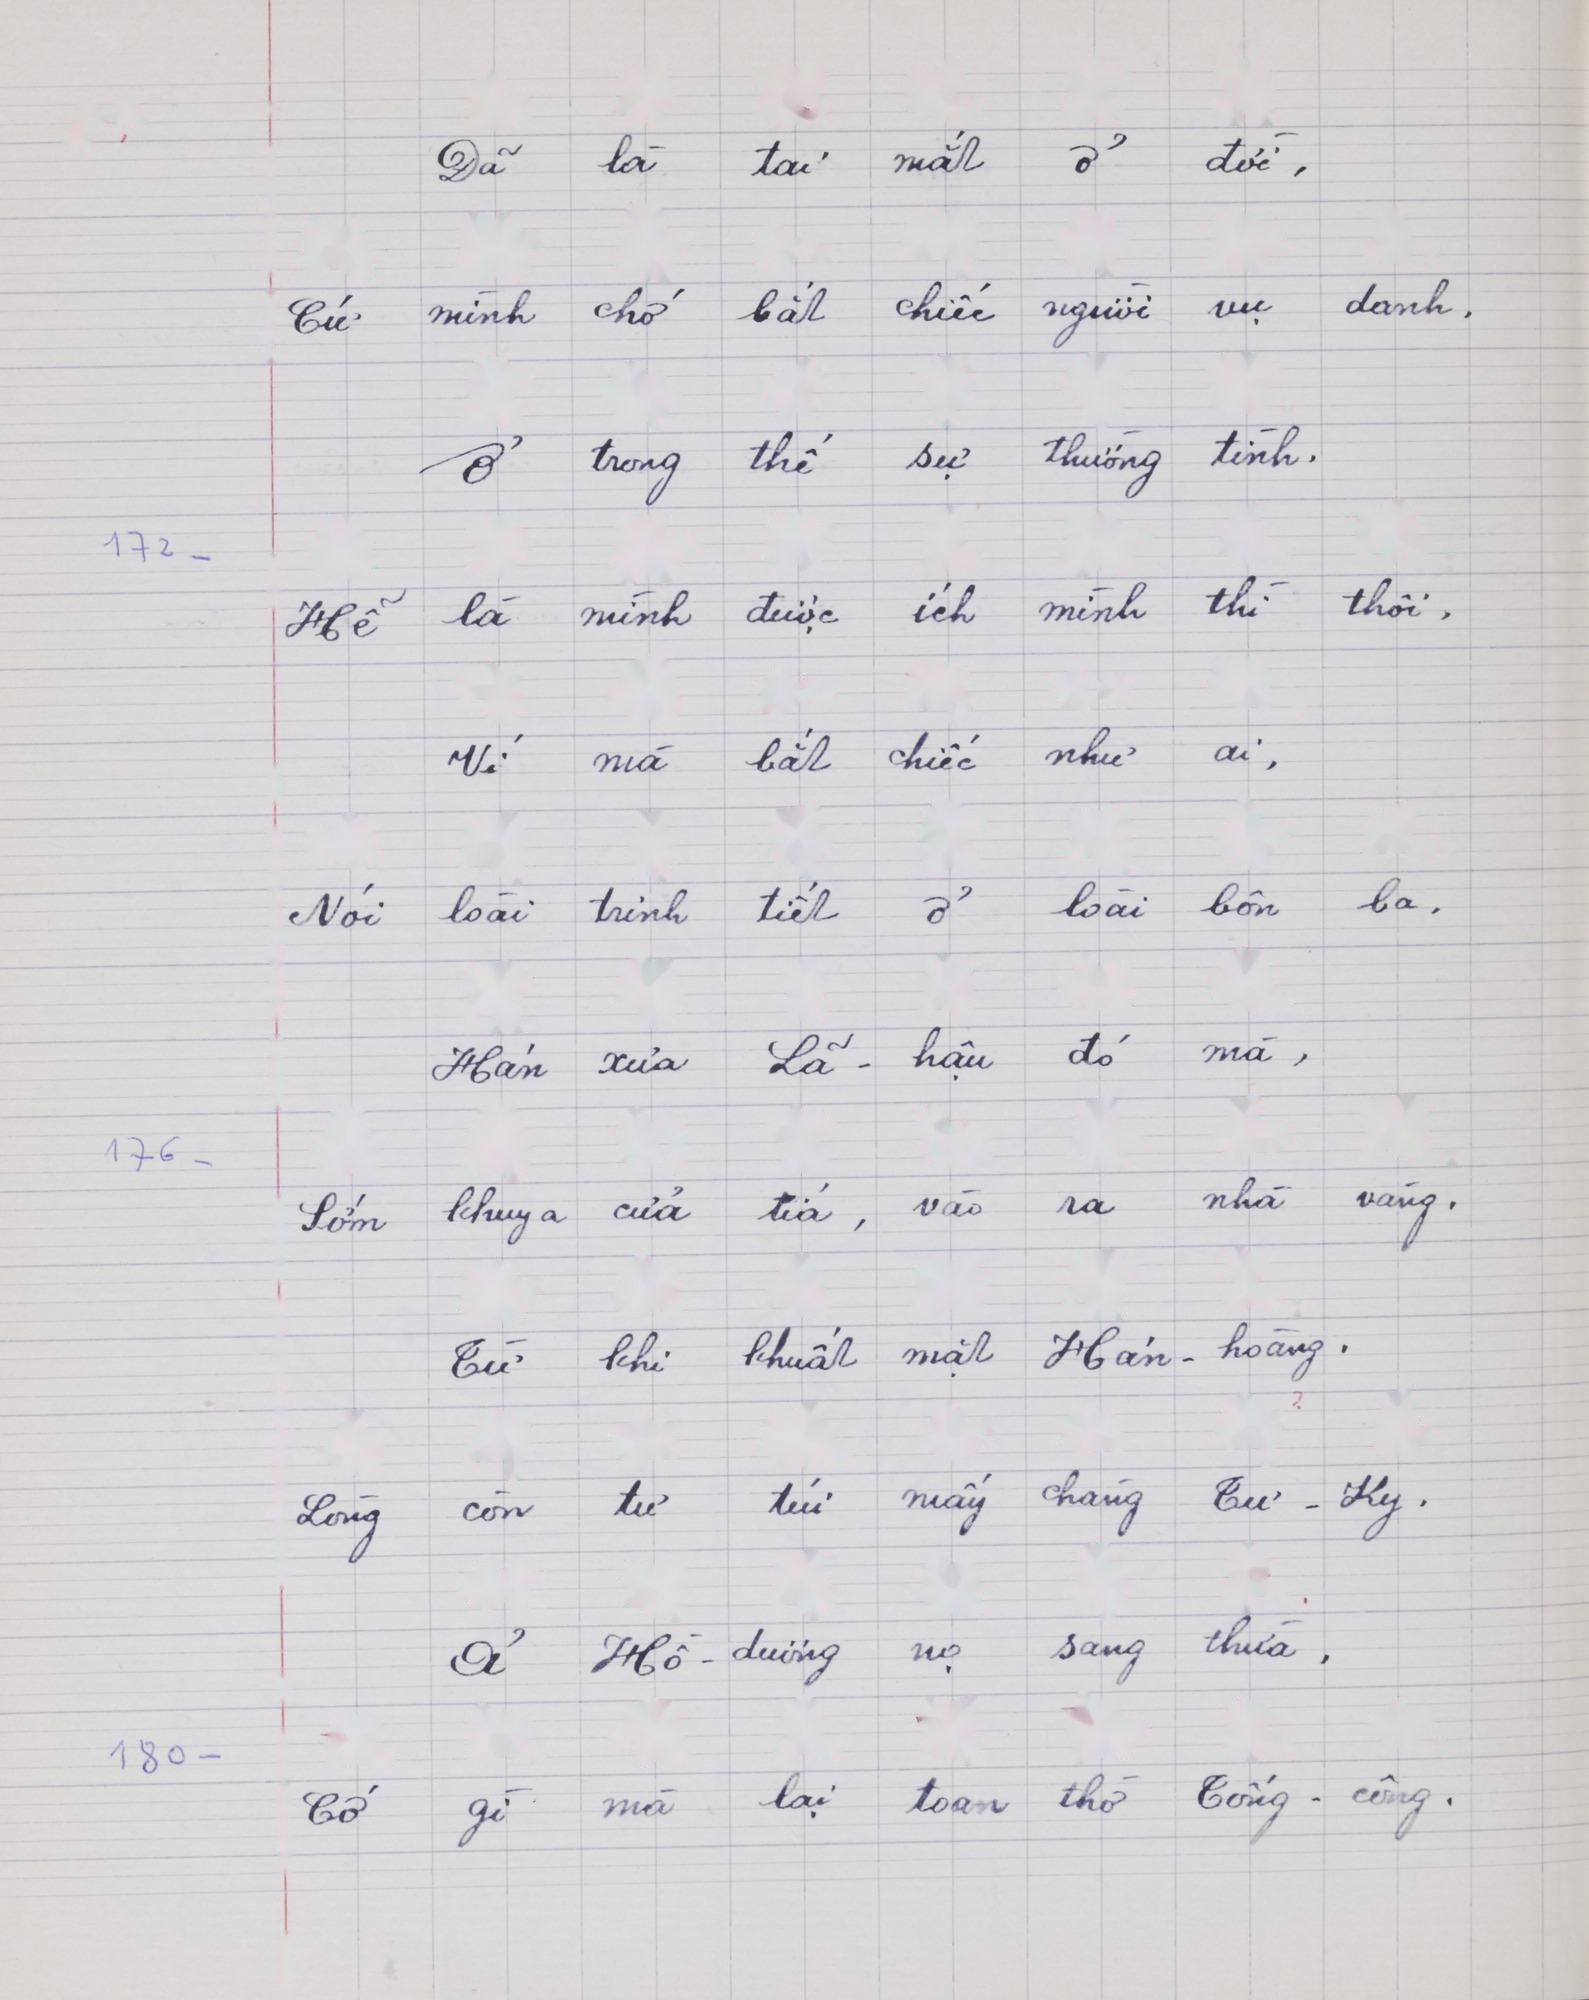 Dã là tai mắt ở đời,
Cứ mình chớ bắt chiếc người vụ danh.
Ở trong thế sự thường tình.
172 -
Hễ là mình được ích mình thì thôi,
Ví mà bắt chiếc như ai,
Nói loài trinh tiết ở loài bôn ba.
Hán xưa Lã - hậu đó mà,
176 -
Sớm khuya cửa tiá, vào ra nhà vàng.
Từ khi khuất mặt Hán - hoàng.
?
Lòng còn tư túi mấy chàng Tư - Ky.
Ả Hồ - dương nọ sang thừa,
180 -
Cớ gì mà lại toan thờ Tống - công.